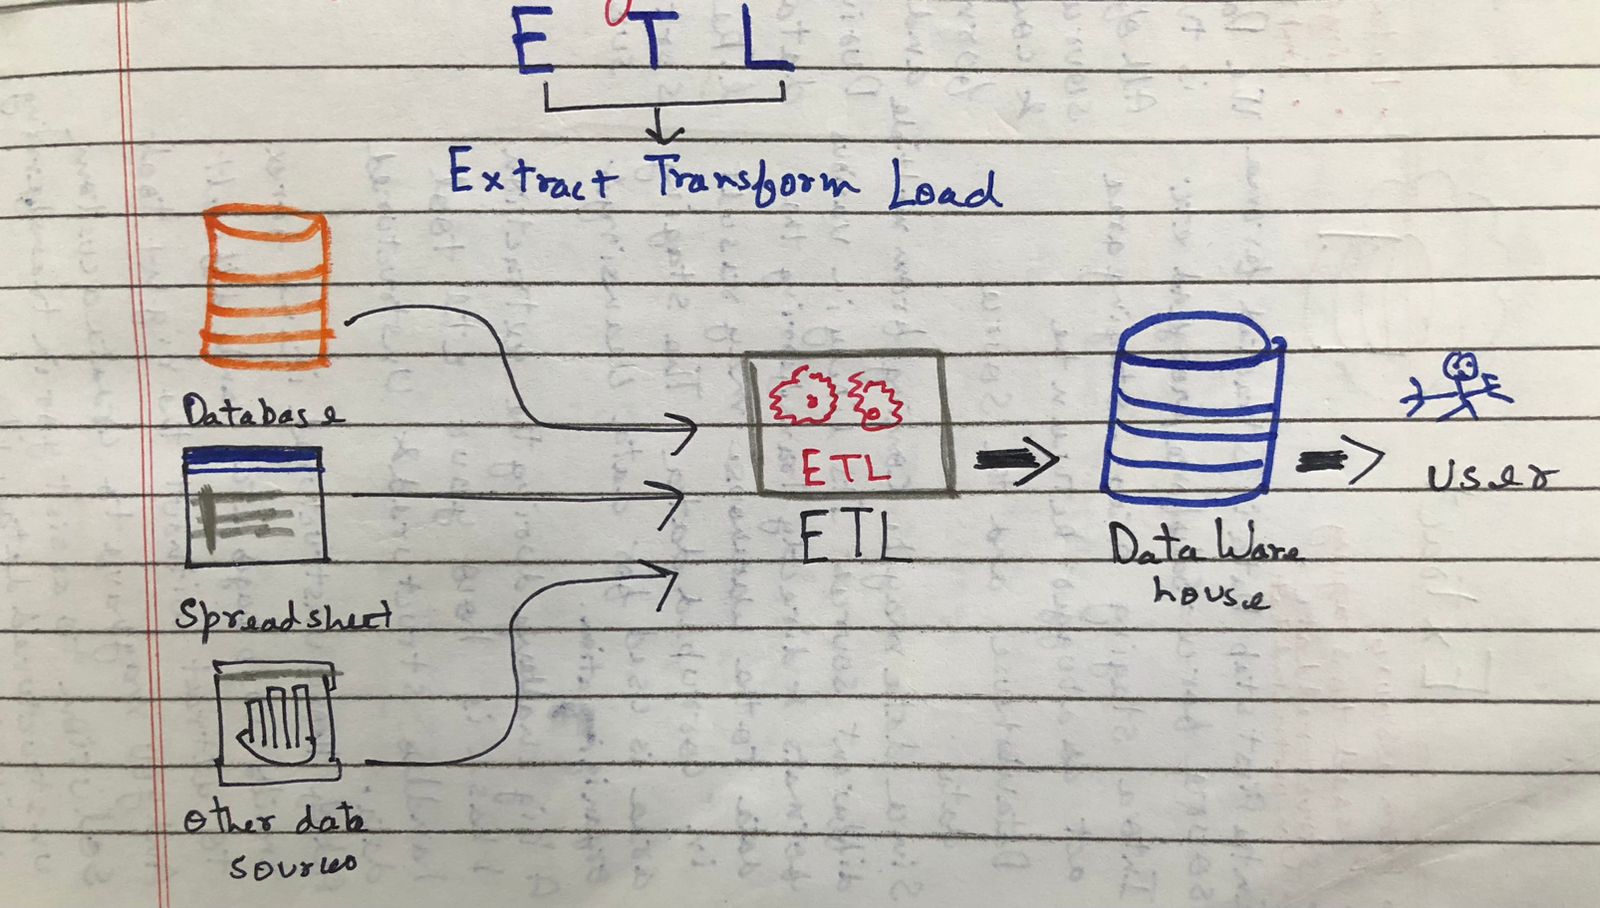 E T L
Extract Transform Load
Database
Spreadsheet
Other data
sources
ETL
ETL
Data Ware
house
User